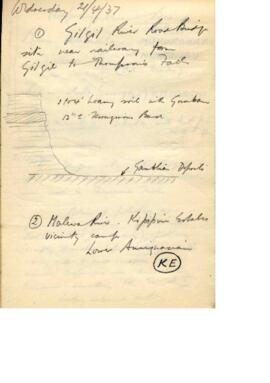 Wednesday 21/4/37
① Gilgil River Road Bridge
site near railway from
Gilgil to Thompson's Falls
loamy soil with Gamblian
Gamblian Deposits
② Malewa River. Kipipiri Estates
vicinity camp
Lower
KE